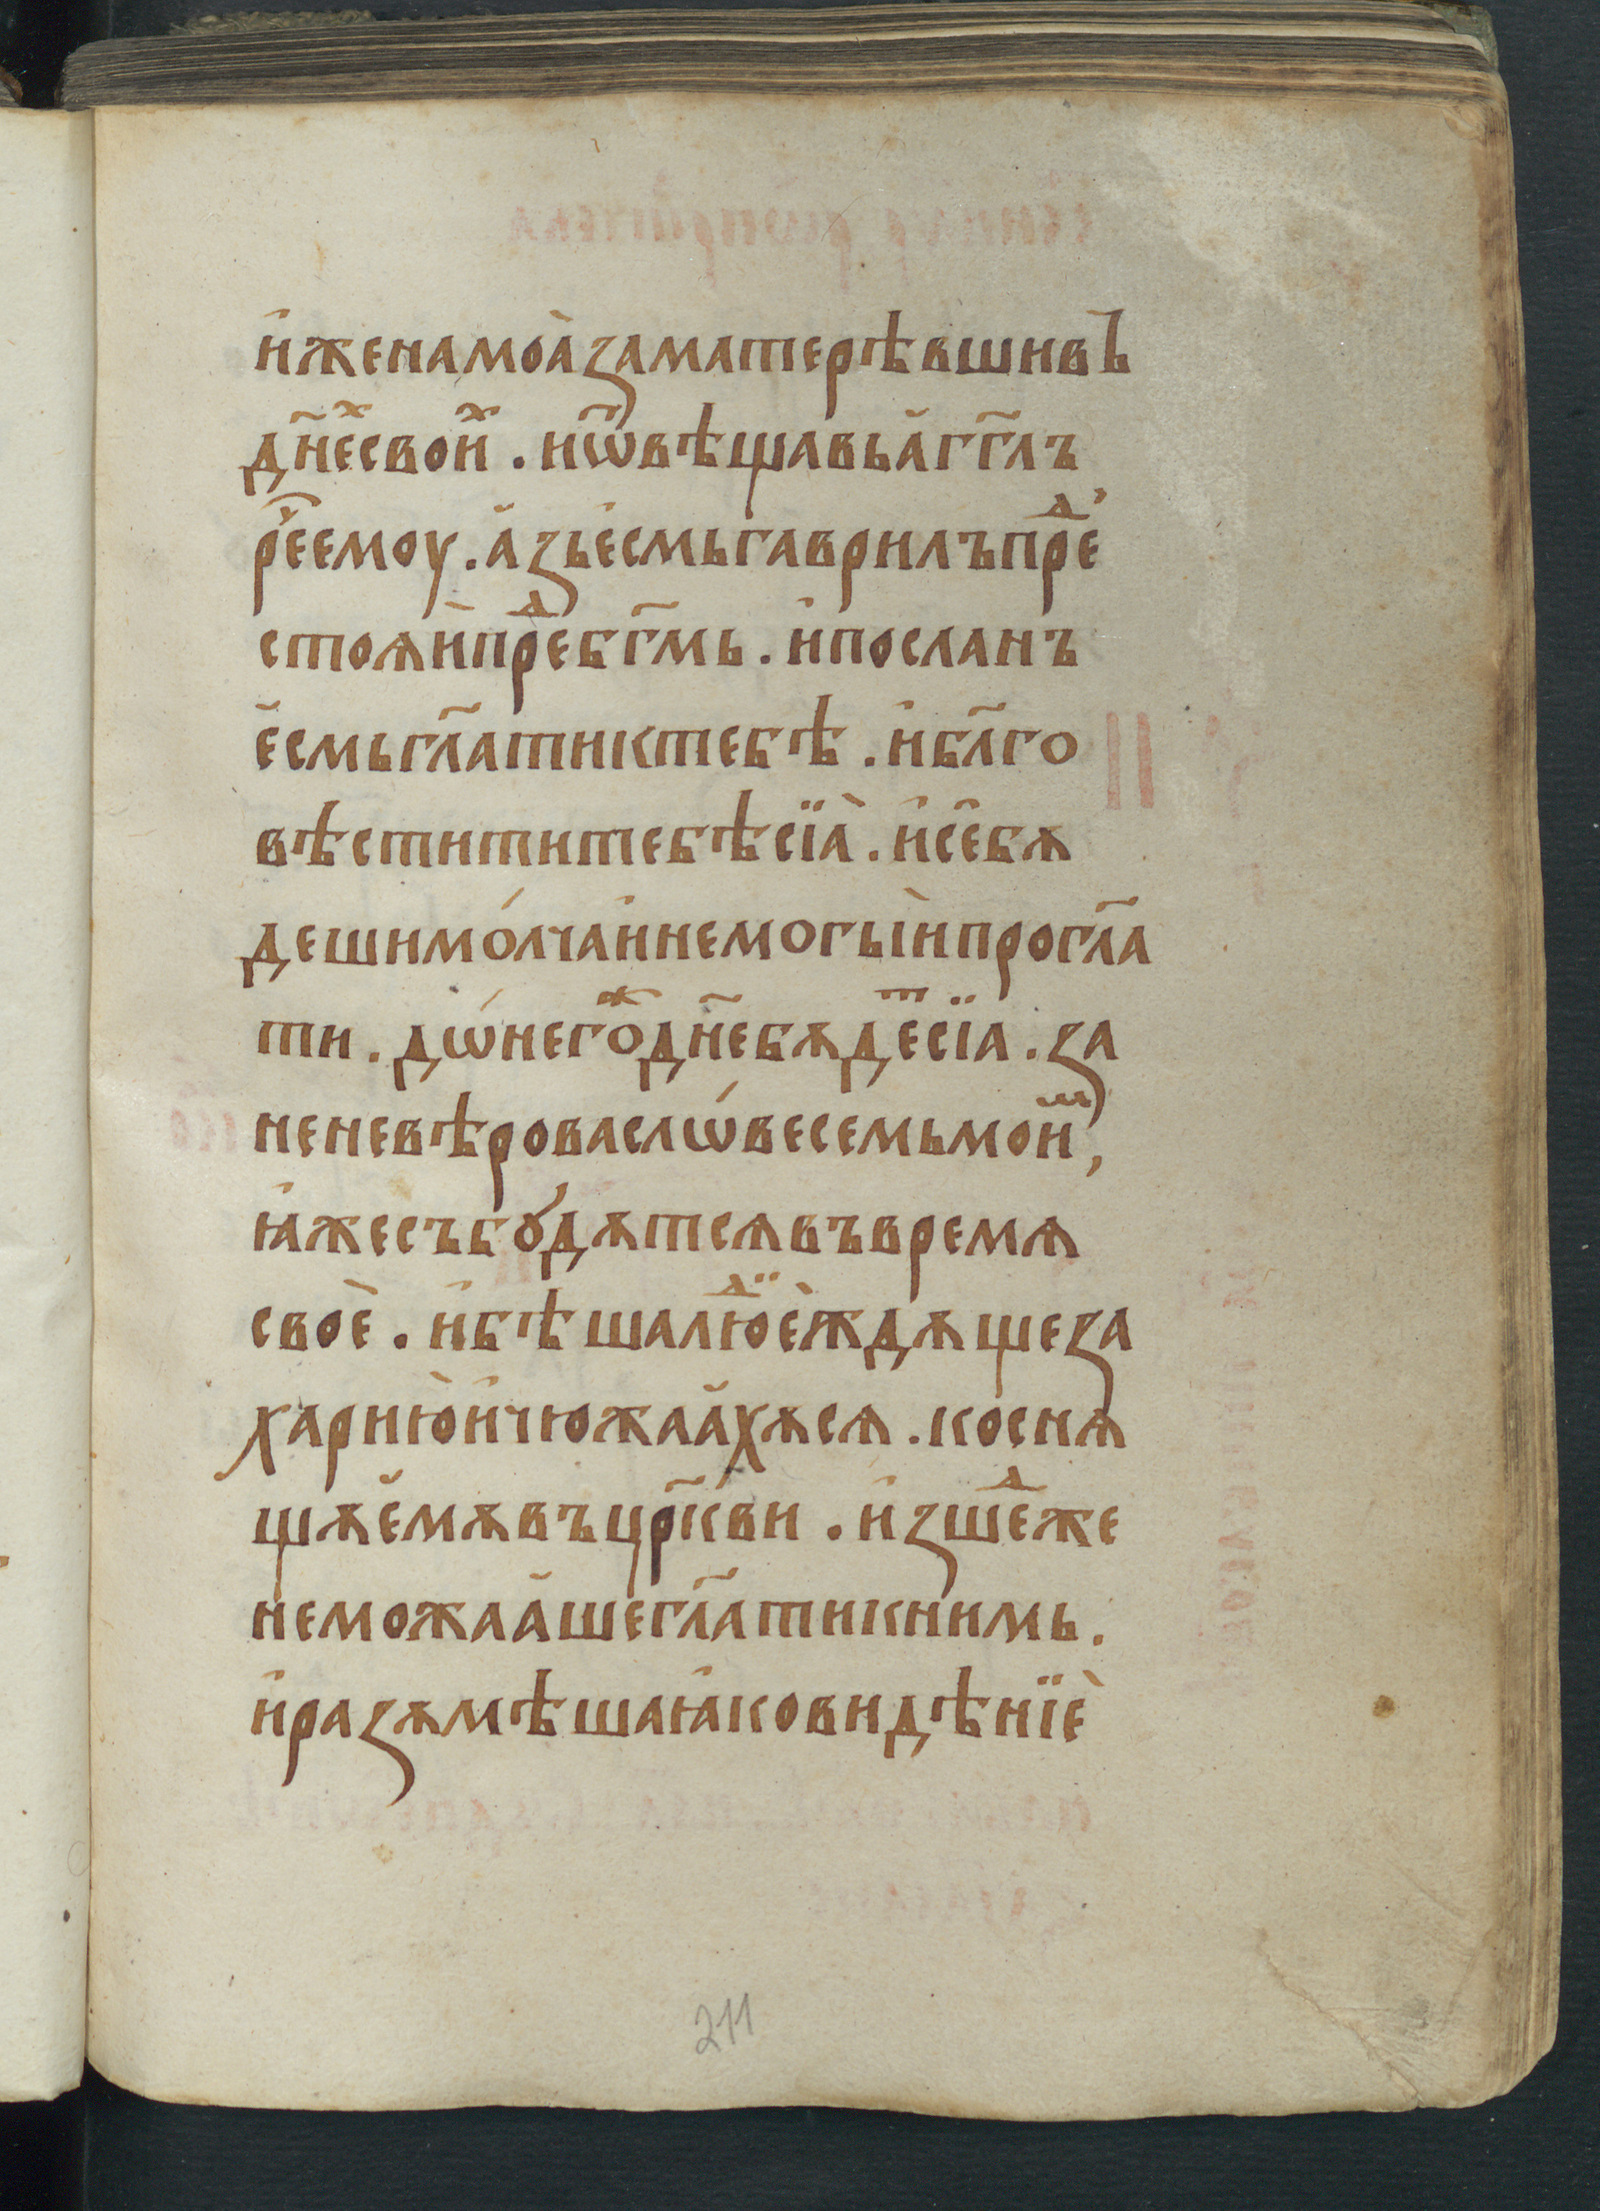 и҆женамоа̀заматерѣвшивъ
дн҃еⷯсвоиⷯ . иѿвѣщавьа҆гг҃лъ
рⷱ҇еемоу . а҆зьес̑мьгавриилъпреⷣ
стоѧи̑преⷣбг҃мь . и҆посланъ
е҆смьгл҃атиктебѣ . и҆бл҃го
вѣстититебѣсїа̀ . и҆себѫ
дешимо́лчаи҆немогыи̑прогл҃а
ти . дѡ́негоⷤдн҃ебѫдеⷮсїа . за
неневѣровасло́весемьмоиⷨ,
ꙗ҆жесъбꙋдѫтсѧвъвремѧ
своѐ . и҆бѣшалюⷣе̑ждѫщеза
хариюи҆чюжаа҆хѫсѧ . коснѧ
щѫе҆мѫвъцр҃кви . и҆зшеⷣже
неможаа҆шегл҃атикнимь .
и҆разѫмѣшаꙗ҆ковидѣнїѐ
211